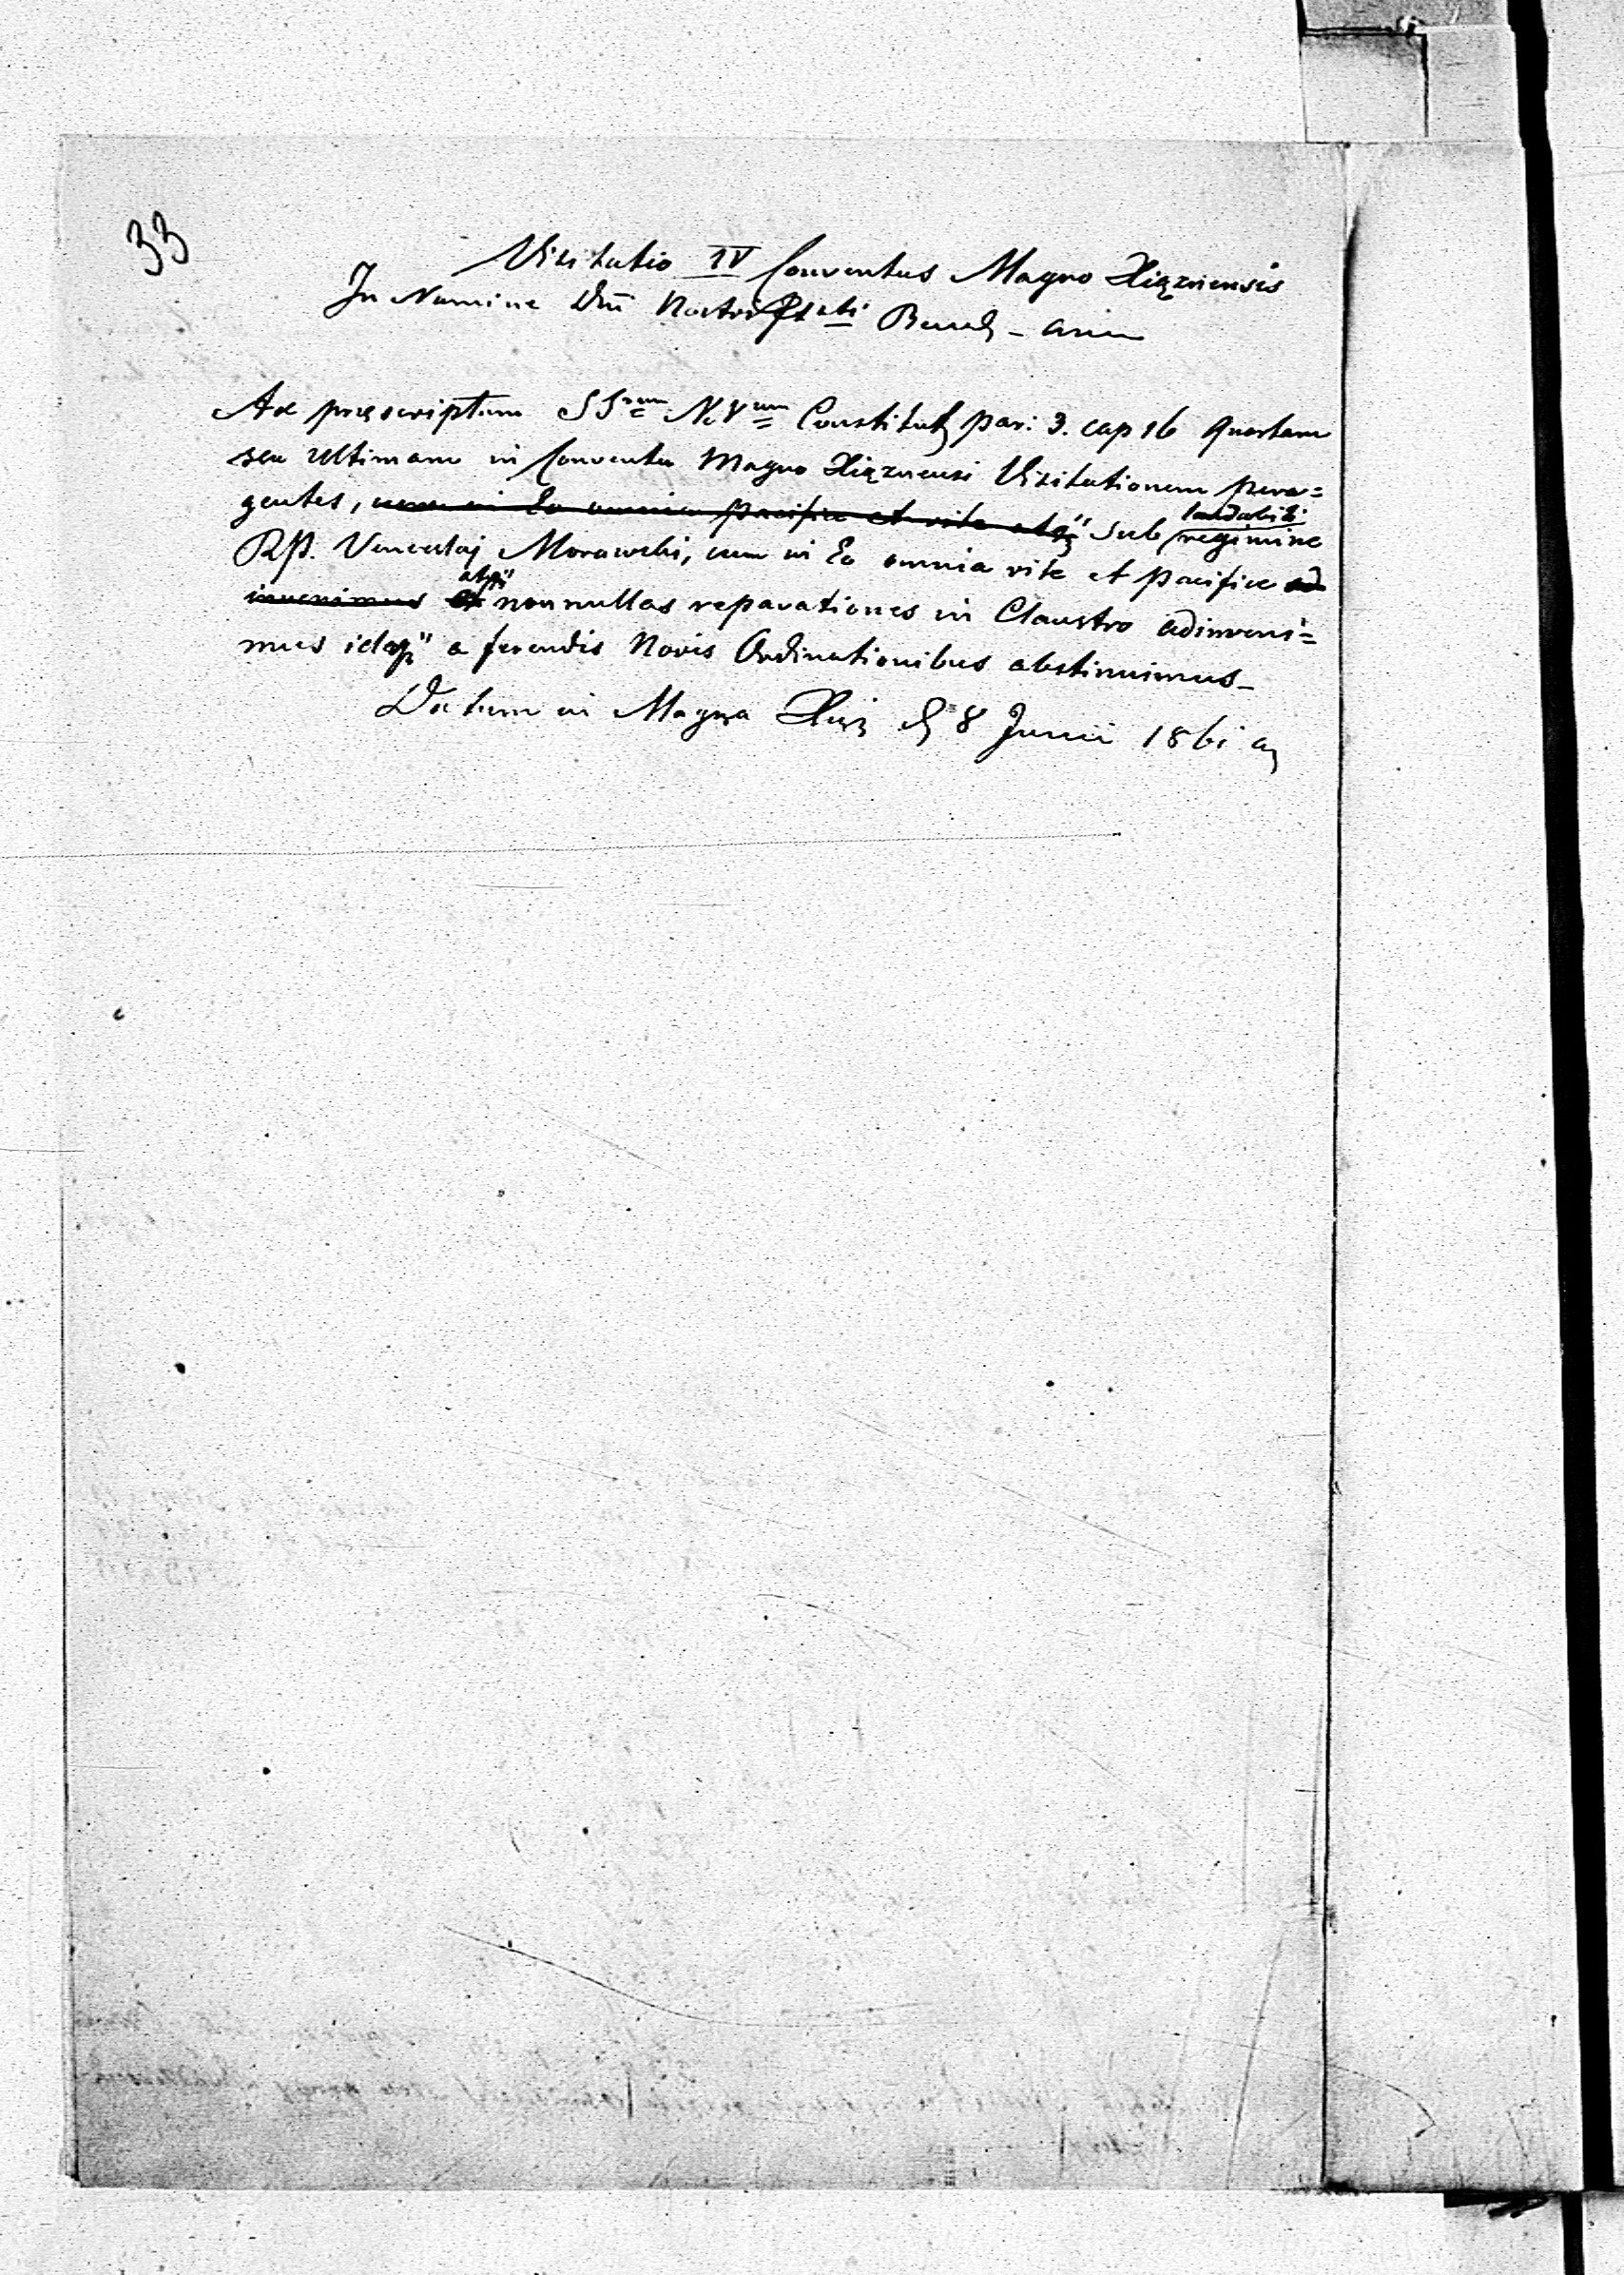 33
Visitatio IV Conventus Magno Xiąznensis
In Nomine Dni Nostri Bened_ arim
Ad pręscriptum SSrum N. Vum Constitut par: 3. cap 16 Quartam
seu Ultimam in Conventu Magno Xiąznensi Visitationem pera=
gentes, cum in Eo omnia pacifice et rite atq" sub laudabili regimine
RP. Venceslaj Morawski, cum in Eo omnia rite et pacifice ad
invenimus et atq" nonnullas reparationes in Claustro adinveni=
mus idcq" a ferendis Novis Ordinationibus abstinuimus_
Datum in Magna Xięż d 8 Junii 1861 a